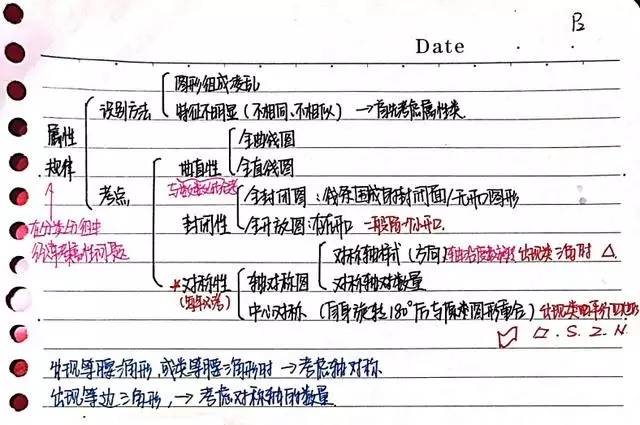 P2
Date
图形组成凌乱
识别方法
特征不明显（不相同、不相似） → 首先考虑属性类
属性
规律
全曲线图
曲直性
全直线图
考点
全封闭图：线条围成的封闭面/无开口图形
封闭性
全开放图：有开口 一般留个小开口.
在分类分组中
经常考属性问题
对称轴样式（方向） 出现类三角时 △
*对称性 轴对称图
对称轴对数量
中心对称（自身旋转180°后与原来图形重合） 出现类平行四边形
▱ . S . Z . N .
出现等腰三角形，或类等腰三角形时 → 考虑轴对称
出现等边三角形， → 考虑对称轴的数量